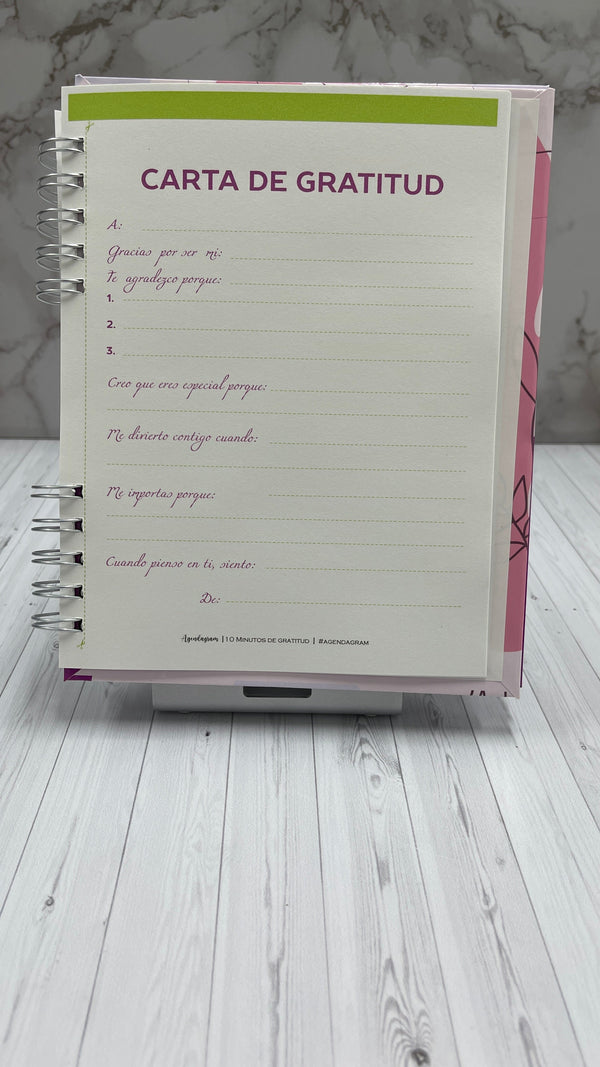 CARTA DE GRATITUD
A:
Gracias por ser mi:
Te agradezco porque:
1.
2.
3.
Creo que eres especial porque:
Me divierto contigo cuando:
Me importas porque:
Cuando pienso en ti, siento:
De:
Agendagram | 10 MINUTOS DE GRATITUD | #AGENDAGRAM